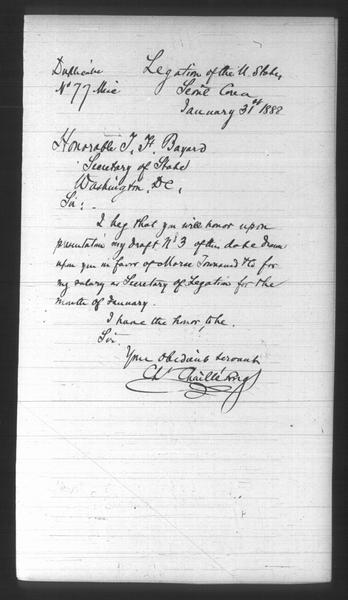 Duplicate
Legation of the U. States
Nº 77 Misc
Seoul Corea
January 31st 1888
Honorable T. F. Bayard
Secretary of State
Washington, D.C.,
Sir:
I beg that you will honor upon
presentation my draft Nº 3 of this date drawn
upon you in favor of Morse Townsend & Co for
my salary as Secretary of Legation for the
month of January.
I have the honor, to be.
Sir.
Your obedient servant
Ch. Chaillé Long